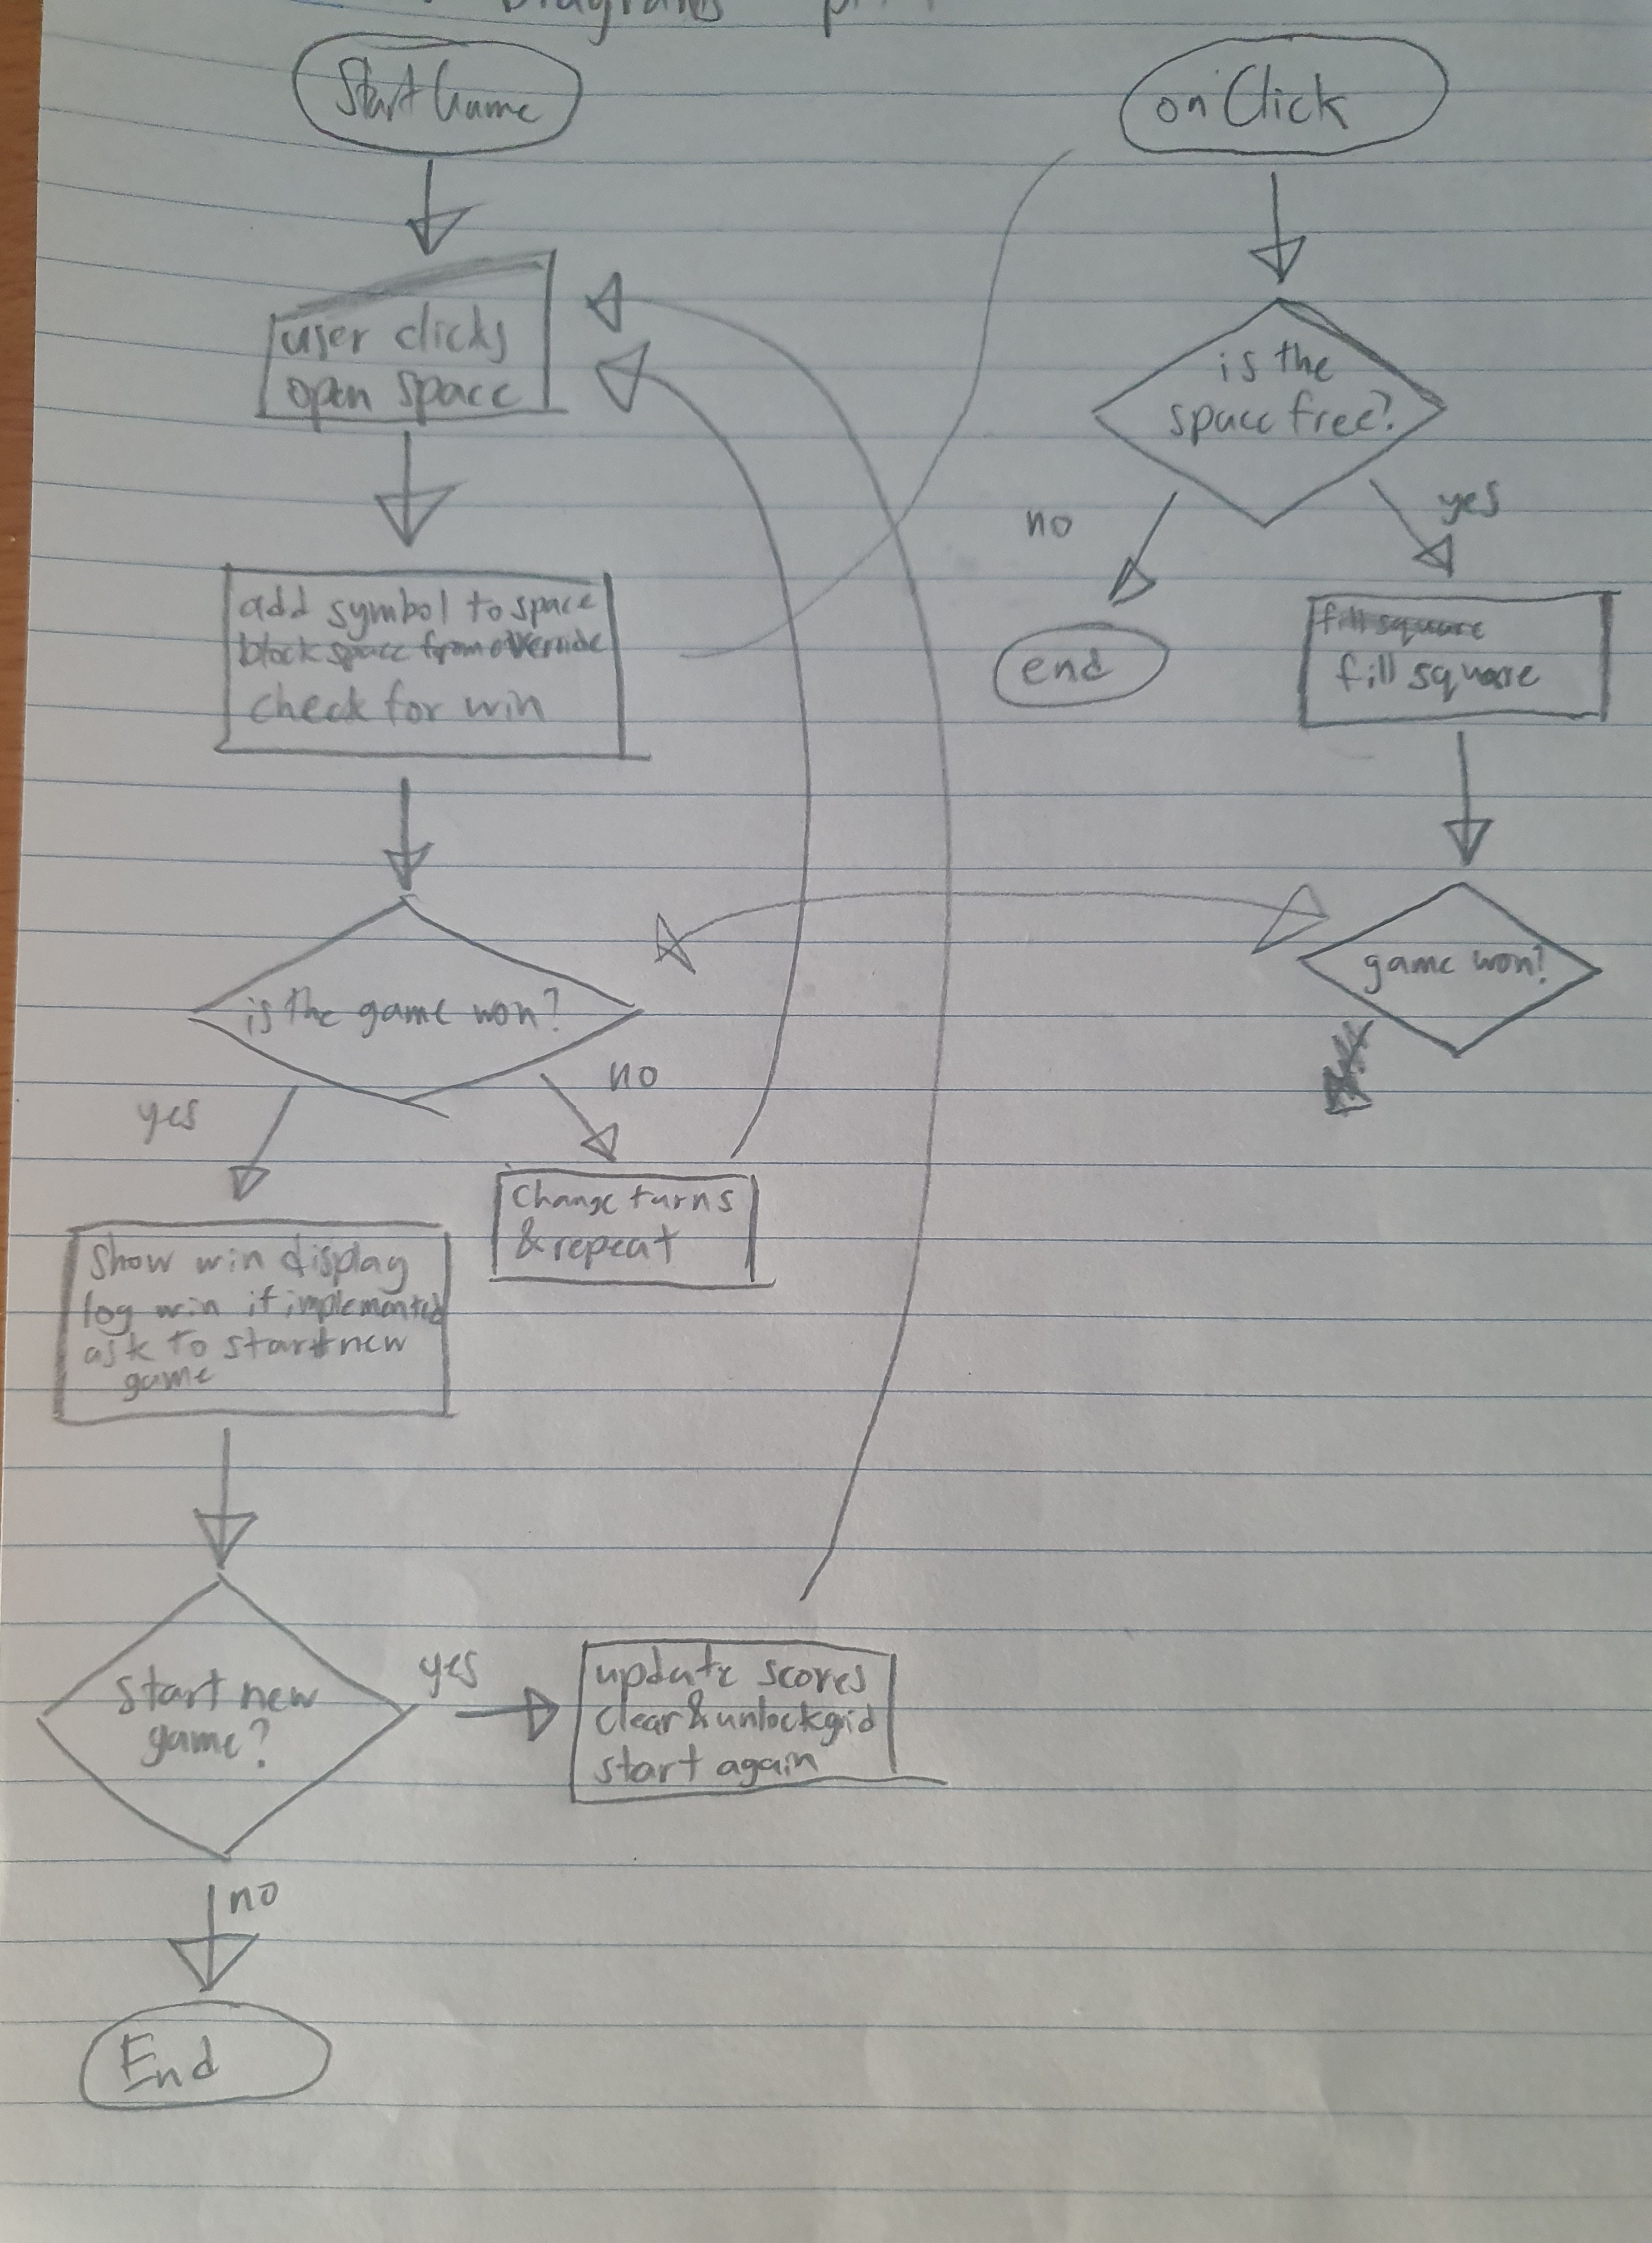 Diagrams
Start Game
user clicks
open space
add symbol to space
block space from override
check for win
is the game won?
yes
no
Change turns
& repeat
Show win display
log win if implemented
ask to start new
game
start new
game?
yes
update scores
clear & unlock grid
start again
no
End
onClick
is the
space free?
no
yes
end
fill square
fill square
game won?